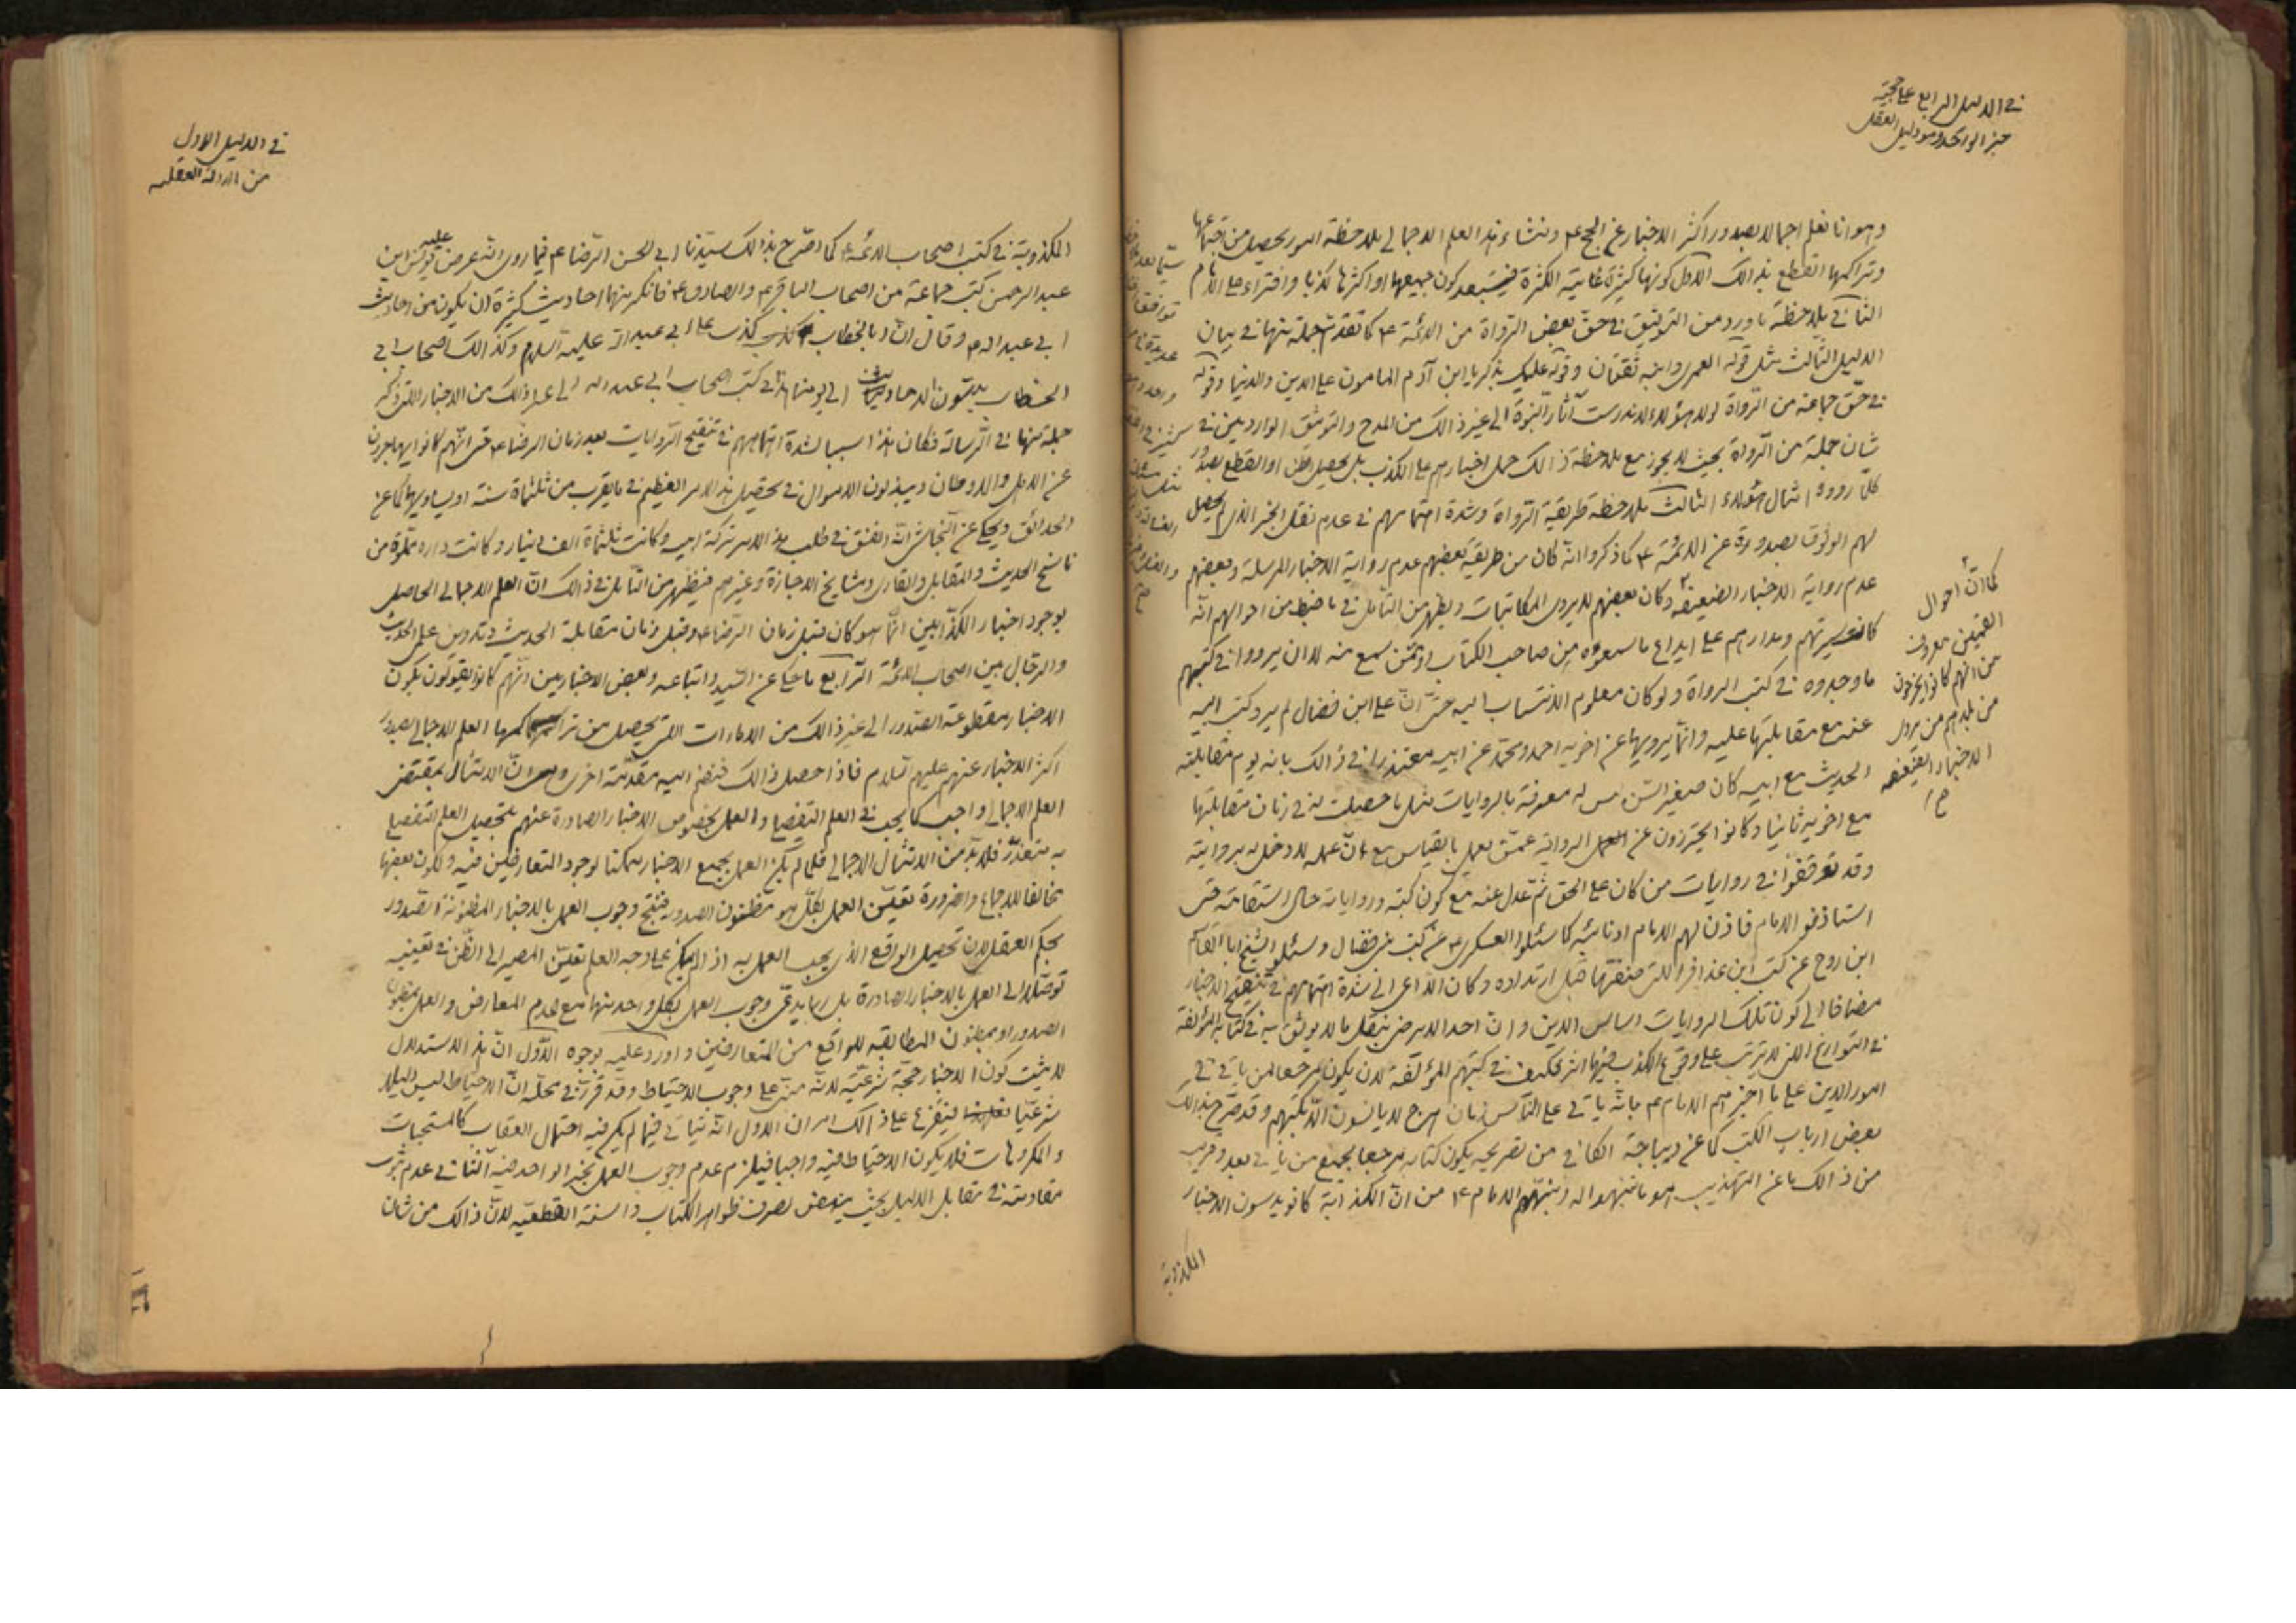 في الدليل الرابع على حجية
خبر الواحد وهو دليل العقل
وهو انا نعلم اجمالا بصدور اكثر الاخبار عن الحجج ع ومنشاء هذا العلم الاجمالي ملاحظة امور يحصل من اجتماعها
وتراكمها القطع بذالك الاول كونها كثيرة غاية الكثرة فيستبعد كون جميعها او اكثرها كذبا وافتراء على الامام
الثاني ملاحظة ما ورد من التوثيق في حق بعض الرواة من الائمة ع كما تقدم جملة منها في بيان
الدليل الثالث مثل قوله العمري وابنه ثقتان وقوله عليك بذكريا ابن آدم المامون على الدين والدنيا وقوله
في حق جماعة من الرواة لولا هؤلاء لاندرست آثار النبوة الى غير ذالك من المدح والتوثيق الواردين في
شان جملة من الرواة بحيث لا يجوز مع ملاحظة ذالك حمل اخبارهم على الكذب بل يحصل الظن او القطع بصدور
كلما رووه امثال هؤلاء الثالث ملاحظة طريقة الرواة وشدة اهتمامهم في عدم نقل الخبر الذي لم يحصل
لهم الوثوق بصدوره عن الائمة ع كما ذكروا انه كان من طريقة بعضهم عدم رواية الاخبار المرسلة وبعضهم
عدم رواية الاخبار الضعيفة ٢ وكان بعضهم لا يروى المكاتبات ويظهر من التأمل في ما ضبط من احوالهم انه
كانت سيرتهم ومدارهم على ايداع ما سمعوه من صاحب الكتاب او ممن سمع منه لا ان يرووا في كتبهم
ما وجدوه في كتب الرواة ولو كان معلوم الانتساب اليه حتى ان على ابن فضال لم يرو كتب ابيه
عنه مع مقابلتها عليه وانما يرويها عن اخويه احمد ومحمد عن ابيه معتذرا في ذالك بانه يوم مقابلته
الحديث مع ابيه كان صغير السن ليس له معرفة بالروايات مثل ما حصلت له في زمان مقابلتها
مع اخويه ثانيا وكانوا يحترزون عن الرواية عمن يعمل بالقياس مع ان عمله لا دخل له بروايته
وقد توقفوا في روايات من كان على الحق ثم عدل عنه مع كون كتبه ورواياته حال استقامته حتى
استاذنوا الامام فاذن لهم الامام او نائبه كما سئلوا العسكري ع عن كتب بني فضال وسئلوا الشيخ ابا القاسم
ابن روح عن كتب ابن عذافر التي صنفها قبل ارتداده وكان الداعي الى شدة اهتمامهم في تنقيح الاخبار
مضافا الى كون تلك الروايات اساس الدين وان احدا لا يرضى بنقل ما لا يوثق به في كتابه المؤلفة
في التواريخ التي لا يترتب على وقوع الكذب فيها اثر فكيف في كتبهم المؤلفة لان يكون مرجعا لمن ياتي في
امور الدين على ما اخبرهم الامام ع بانه ياتي على الناس زمان هرج لا يانسون الا بكتبهم وقد صرح بذالك
بعض ارباب الكتب كما عن ديباجة الكافي من تصريحه بكون كتابه مرجعا لجميع من ياتي بعد وقريب
من ذالك ما عن التهذيب هو ما تنبهوا له ونبههم الامام ع من ان الكذابة كانوا يدسون الاخبار
المكذوبة
كما ان احوال
القميين معروف
من انهم كانوا يخرجون
من بلدهم من يروى
الاخبار الضعيفة
في الدليل الاول
من الادلة العقلية
المكذوبة في كتب اصحاب الائمة ع كما صرح بذالك سيدنا ابى الحسن الرضا ع فيما روى انه عرض عليه يونس ابن
عبد الرحمن كتب جماعة من اصحاب الباقر ع والصادق ع فانكر منها احاديث كثيرة ان يكون من احاديث
ابى عبد الله ع وقال ان ابا الخطاب كذب على ابى عبد الله عليه السلام وكذالك اصحاب ابى
الخطاب يدسون الاحاديث الى يومنا هذا في كتب اصحاب ابى عبد الله الى غير ذلك من الاخبار التي ذكر
جملة منها في الرسالة فكان هذا سببا لشدة اهتمامهم في تنقيح الروايات بعد زمان الرضا ع حتى انهم كانوا يهاجرون
عن الاهل والاوطان ويبذلون الاموال في تحصيل هذا الامر العظيم في ما يقرب من ثلثماة سنة او يساويها كما عن
الحدائق ويحكى عن النجاشي انه انفق في طلب هذا الامر تركة ابيه وكانت ثلثماة الف دينار وكانت داره مملوة من
ناسخ الحديث والمقابل والقارى ومشايخ الاجازة وغيرهم فيظهر من التأمل في ذالك ان العلم الاجمالي الحاصل
بوجود اخبار الكذابين انما هو كان قبل زمان الرضا ع وقبل زمان مقابلة الحديث وتدوين علم الحديث
والرجال بين اصحاب الائمة الرابع ما حكى عن السيد واتباعه وبعض الاخباريين انهم كانوا يقولون بكون
الاخبار مقطوعة الصدور الى غير ذالك من الامارات التي يحصل من تراكمها العلم الاجمالي بصدور
اكثر الاخبار عنهم عليهم السلام فاذا حصل ذالك فنضم اليه مقدمة اخرى وهى ان الامتثال بمقتضى
العلم الاجمالي واجب كما يجب في العلم التفصيلي والعمل بخصوص الاخبار الصادرة عنهم بتحصيل العلم التفصيلي
به متعذر فلا بد من الامتثال الاجمالي فلما لم يكن العمل بجميع الاخبار ممكنا لوجود التعارضين فيه ولكون بعضها
مخالفا للاجماع والضرورة تعين العمل بكل ما هو مظنون الصدور فينتج وجوب العمل بالاخبار المظنونة الصدور
بحكم العقل لان تحصيل الواقع الذي يجب العمل به اذا لم يمكن على وجه العلم تعين المصير الى الظن في تعيينه
توصلا الى العمل بالاخبار الصادرة بل ربما يدعى وجوب العمل بكل واحد منها مع عدم المعارض والعمل بمظنون
الصدور او بمظنون المطابقة للواقع من المتعارضين واورد عليه بوجوه الاول ان هذا الاستدلال
لا يثبت كون الاخبار حجة شرعية لانه مبنى على وجوب الاحتياط وقد قرر في محله ان الاحتياط ليس دليلا
شرعيا فيتفرع على ذالك امران الاول انه فيما لم يكن فيه احتمال العقاب كالمستحبات
والمكروهات فلا يكون الاحتياط فيه واجبا فيلزم عدم وجوب العمل بخبر الواحد فيه الثاني عدم ثبوت
مقاومته في مقابل الدليل بحيث ينهض لصرف ظواهر الكتاب والسنة القطعية لان ذالك من شان